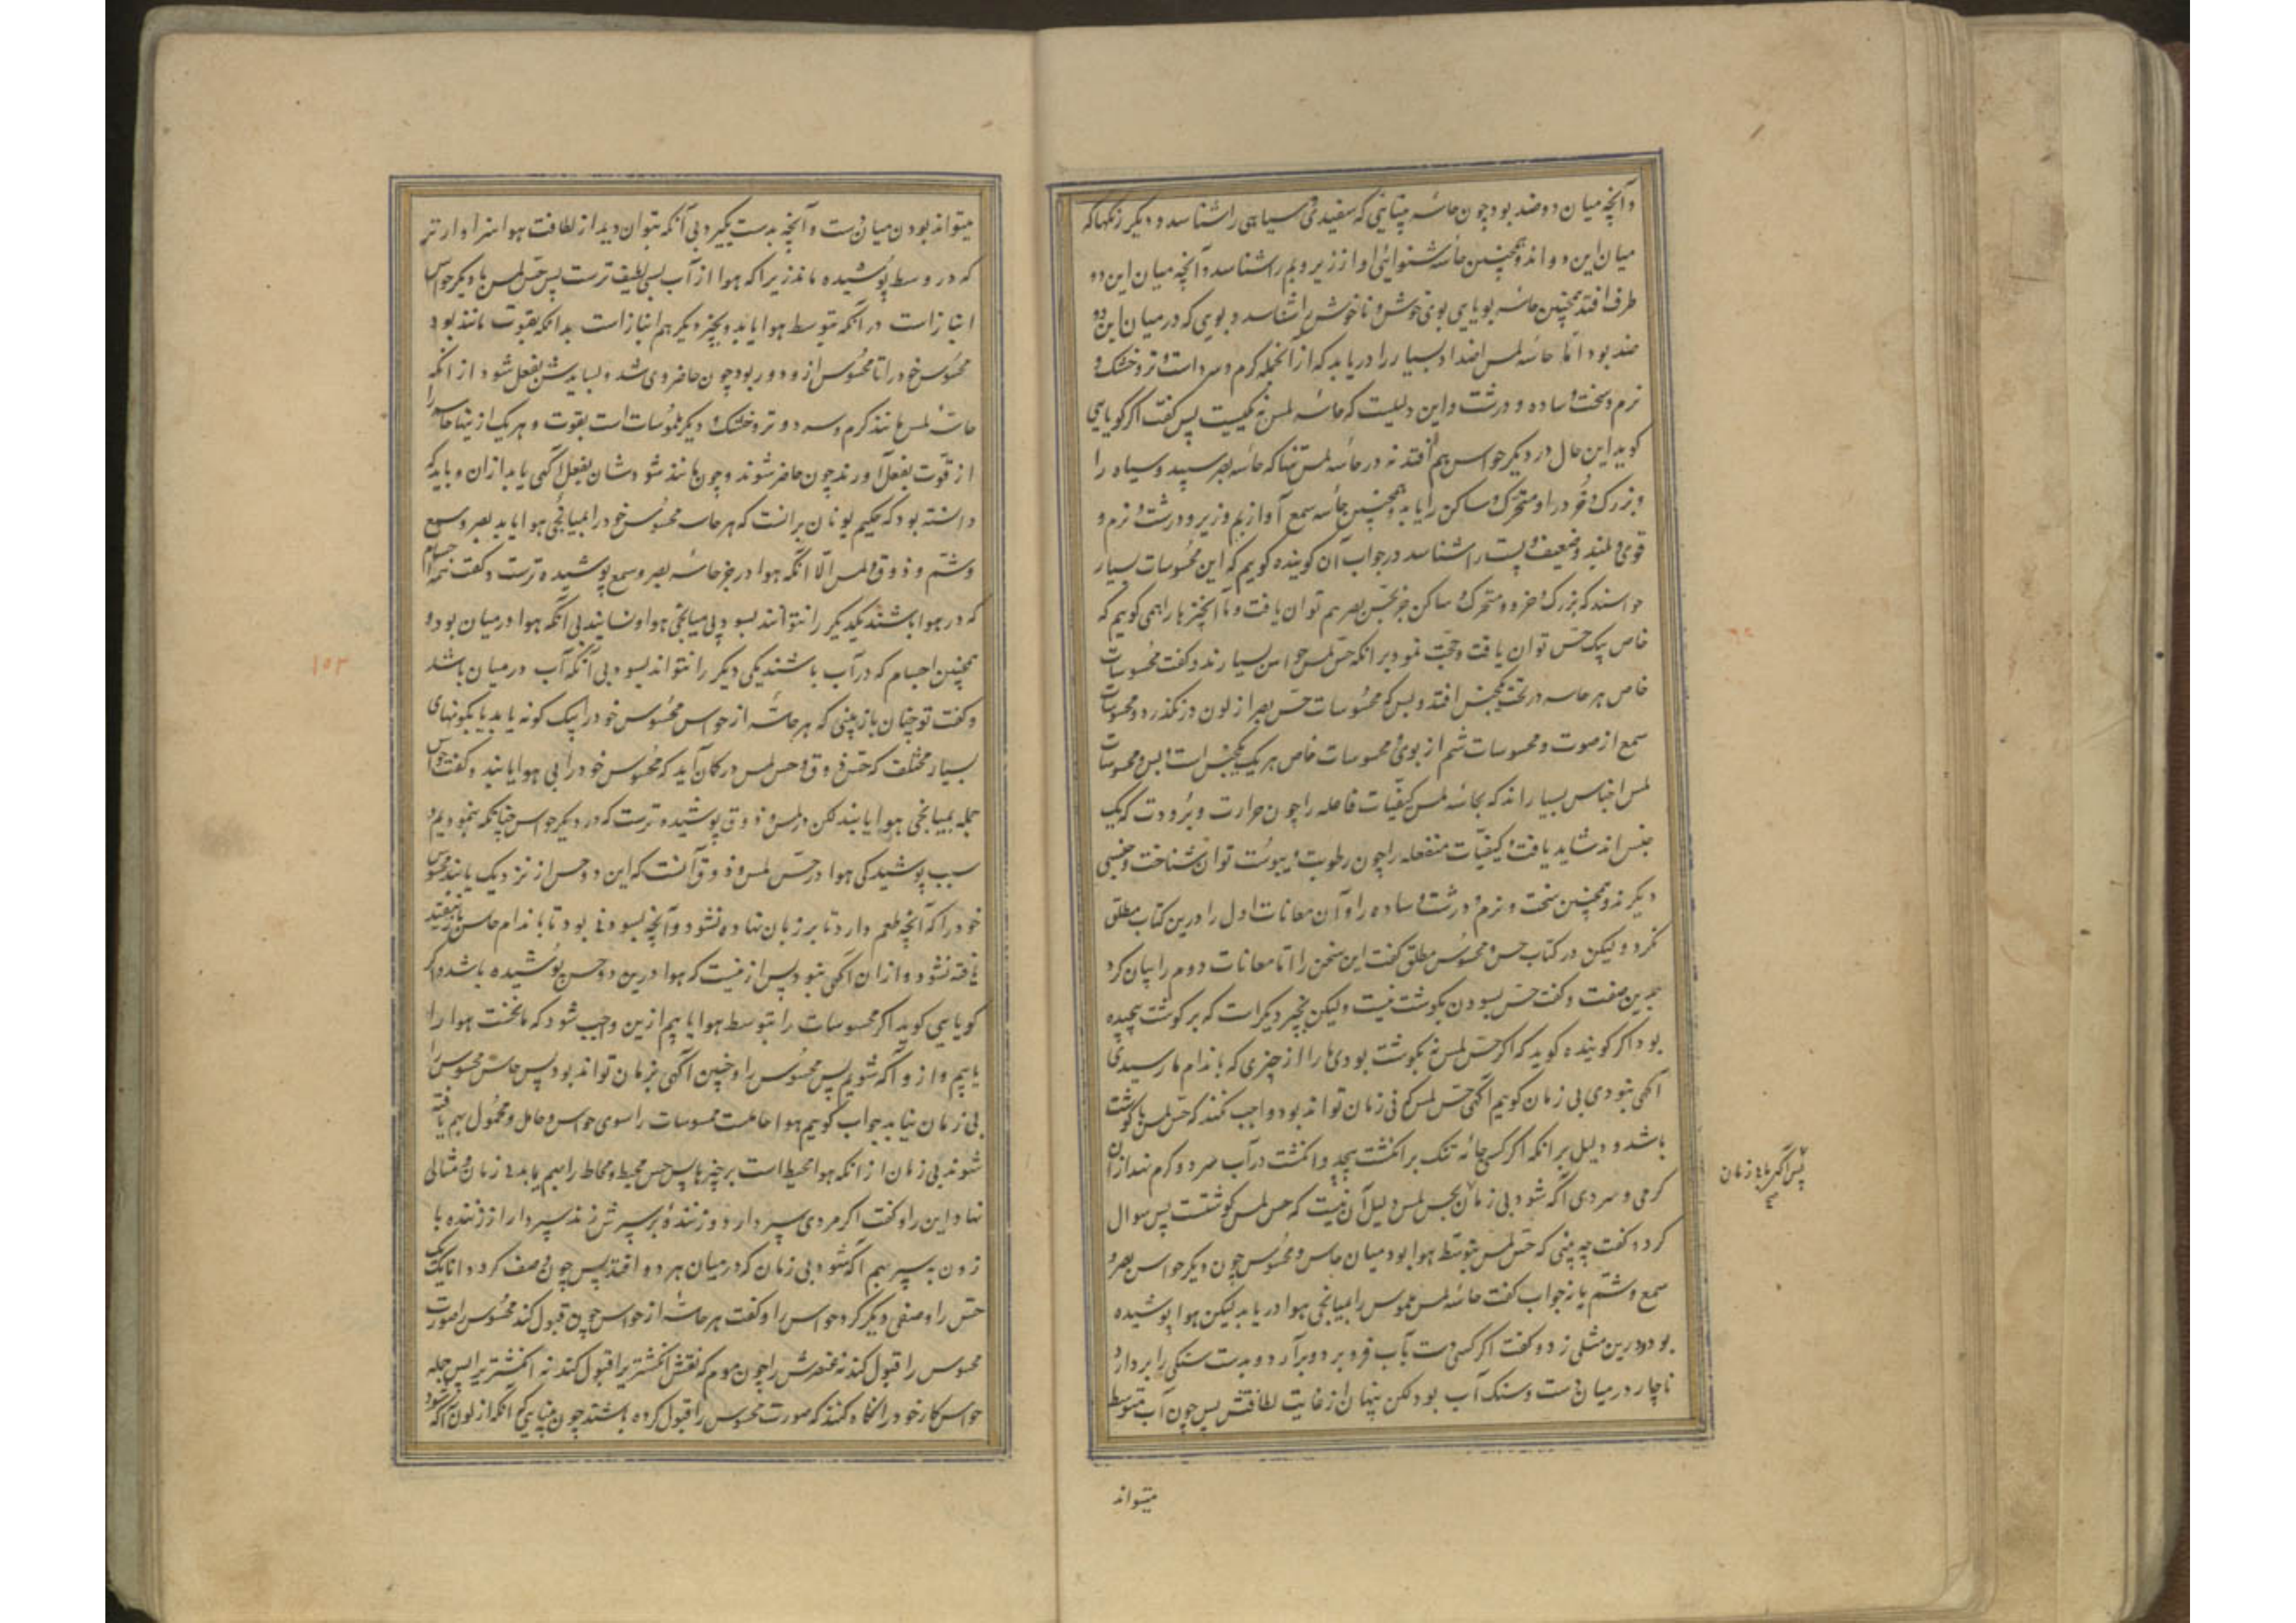 و آنچه میان دو ضد بود چون حاسّه بینایی که سفیدی و سیاهی را شناسد و دیگر رنگها که
میان این دو اند و همچنین حاسّه شنوائی آواز زیر و بم را شناسد و آنچه میان این دو
طرف افتد همچنین حاسّه بویایی بوی خوش و ناخوش را شناسد و بویی که در میان این دو
ضد بود امّا حاسّه لمس اضداد بسیار را دریابد که از آنجمله گرم و سرد است و تر و خشک و
نرم و سخت و ساده و درشت و این دلیلست که حاسّه لمس نه یکیست پس گفت اگر گویایی
گوید این حال در دیگر حواس هم افتد نه در حاسّه لمس تنها که حاسّه بصر سپید و سیاه را
و بزرگ و خُرد را و متحرّک و ساکن را یابد و همچنین حاسّه سمع آواز بم و زیر و درشت و نرم و
قوی و بلند و ضعیف و پست را شناسد در جواب آن گوینده گویم که این محسوسات بسیار
حواسند که بزرگ و خرد و متحرک و ساکن جز بحسّ بصر هم توان یافت و ما آنچیزها را همی گوییم که
خاص بیک حسّ توان یافت و حجّت نمود بر آنکه حسّ لمس حواس بسیارند و گفت محسوسات
خاص هر حاسه در تحت یکجنس افتد و بس که محسوسات حسّ بصر از لون درنگذرد و محسوسات
سمع از صوت و محسوسات شم از بوی و محسوسات خاص هر یک یکجنس است و بس و محسوسات
لمس اجناس بسیاراند که بحاسّه لمس کیفیّات فاعله را چون حرارت و برودت که یک
جنس اند شاید یافت و کیفیّات منفعله را چون رطوبت و یبوست توان شناخت و جنسی
دیگرند و همچنین سخت و نرم و درشت و ساده را و آن معانات اول را درین کتاب مطلق
نکرد و لیکن در کتاب حس و محسوس مطلق گفت این سخن را امّا معانات دوم را بیان کرد
بدین صفت و گفت حسّ بسودن بگوشت نیست ولیکن بچیز دیگر است که بر گوشت پیچیده
بود اگر گوینده گوید که اگر حسّ لمس نه بگوشت بودی ما را از چیزی که باندام ما رسیدی
آگهی نبودی بی زمان گوییم آگهی حسّ لمس که نی زمان تواند بود واجب نکند که حسّ لمس با گوشت
باشد و دلیل بر آنکه اگر کسی جامه تنک بر انگشت پیچد و انگشت در آب سرد و گرم نهد از آن
گرمی و سردی آگه شود بی زمان بحس لمس و دلیل آن نیست که حس لمس گوشتست پس سوال
کرد و گفت چه بینی که حسّ لمس بتوسّط هوا بود میان حاس و محسوس چون دیگر حواس بصر و
سمع و شمّ یا نه جواب گفت حاسّه لمس ملموس را بمیانجی هوا دریابد لیکن هوا پوشیده
بود و درین مثلی زد و گفت اگر کسی دست بآب فرو برد و برآرد و بدست سنگی را بردارد
ناچار در میان دست و سنگ آب بود لکن پنهان از غایت لطافتش پس چون آب متوسط
پس آگهی ما نه بزمان
میتواند
میتواند بودن میان دست و آنچه بدست بگیرد بی آنکه بتوان دید از لطافت هوا سزاوارتر
که در وسط پوشیده ماند زیرا که هوا از آب بسی لطیف ترست پس حسّ لمس با دیگر حواس
انبازاست در آنکه بتوسط هوا یابد و بچیز دیگر هم انبازاست بدانکه بقوت مانند بود
محسوس خود را تا محسوس ازو دور بود چون حاضر وی شد و بساییدش بفعل شود از آنکه
حاسّه لمس مانند گرم و سرد و تر و خشک و دیگر ملموسات است بقوت و هریک ازینها حاسه را
از قوّت بفعل آورند چون حاضر شوند و چون مانند شودشان بفعل آگهی یابد ازان و باید که
دانسته بود که حکیم یونان برانست که هر حاسه محسوس خود را بمیانجی هوا یابد بصر و سمع
و شم و ذوق و لمس الّا آنکه هوا در جز حاسّه بصر و سمع پوشیده ترست و گفت همه اجسام
که در هوا باشند یکدیگر را نتوانند بسود بی میانجی هوا و نسایند بی آنکه هوا در میان بود و
همچنین اجسام که در آب باشند یکی دیگر را نتواند بسود بی آنکه آب در میان باشد
و گفت تو چنان باز بینی که هر حاسّه از حواس محسوس خود را بیک گونه یابد یا بگونهای
بسیار مختلف که حسّ ذوق و حس لمس در گمان آید که محسوس خود را بی هوا یابند و گفت حواس
جمله بمیانجی هوا یابند لکن در لمس و ذوق پوشیده ترست که در دیگر حواس چنانکه بنمودیم و
سبب پوشیدگی هوا در حسّ لمس و ذوق آنست که این دو حس از نزدیک یابند محسوس
خود را که آنچه طعم دارد تا بر زبان نهاده نشود و آنچه بسودنی بود تا باندام حاس نیفتد
یافته نشود و ازان آگهی نبود پس ازینست که هوا درین دو حس پوشیده باشد و اگر
گویایی گوید اگر محسوسات را بتوسط هوا یابیم ازین واجب شود که ما نخست هوا را
یابیم و ازو آگه شویم پس محسوس را و چنین آگهی بزمان تواند بود پس حاسّه محسوس را
بی زمان نیابد جواب گوییم هوا حاملست محسوسات را سوی حواس و حامل و محمول بهم یافته
شوند بی زمان از آنکه هوا محیط است بر چیزها پس حس محیط و محاط را بهم یابد نه بزمان و مثالی
نهاد این را و گفت اگر مردی سپر دارد و زننده بر سپرش زند سپردار از زننده با
زدن به سپر بهم آگه شود بی زمان که در میان هر دو افتد پس چون وصف کرد دانا یک یک
حسّ را وصفی دیگر کرد حواس را و گفت هر حاسّه از حواس چون قبول کند محسوس را صورت
محسوس را قبول کند نه عنصرش را چون موم که نقش انگشتری را قبول کند نه انگشتری را پس جمله
حواس کار خود را آنگاه کنند که صورت محسوس را قبول کرده باشند چون بینایی که آنگه از لون آگه شود
۱۵۲